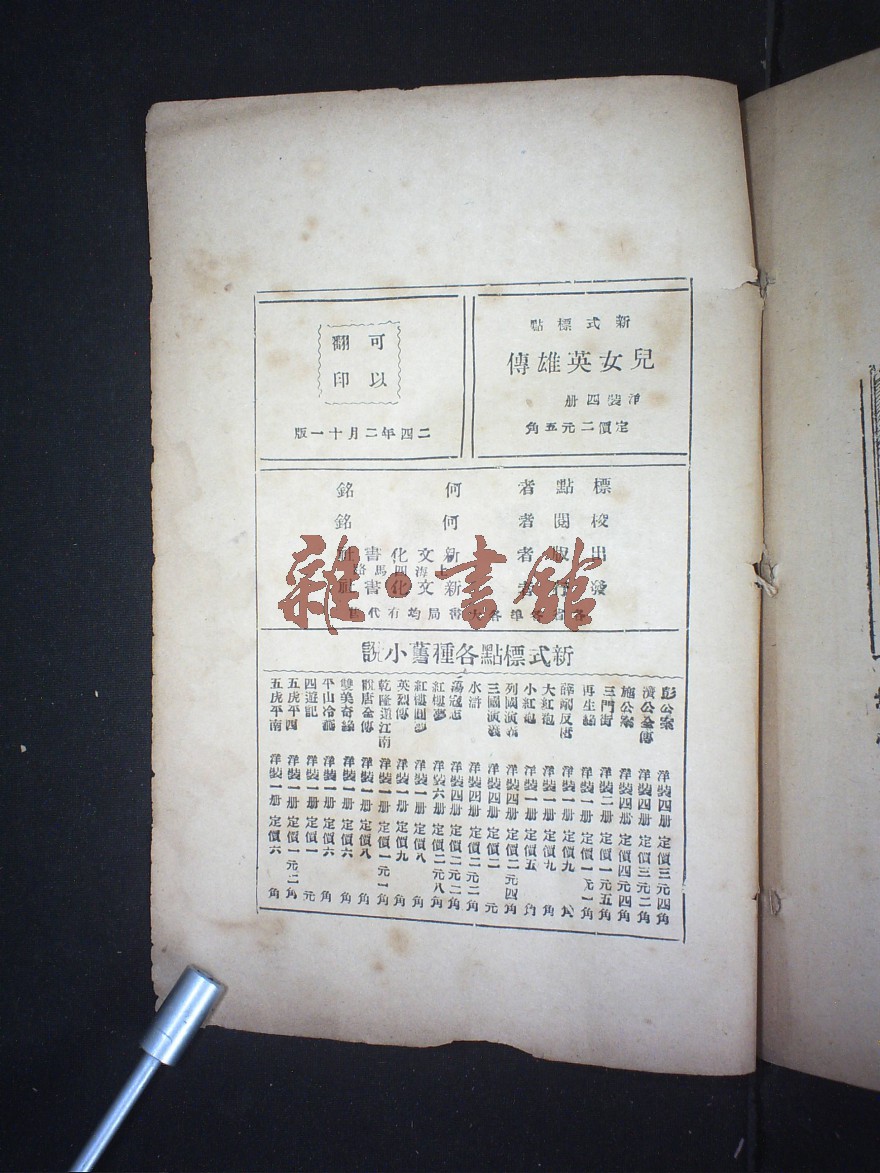 新式標點
兒女英雄傳
洋裝四册
定價二元五角
可以
翻印
二四年二月十一版
標點者 何銘
校閱者 何銘
出版者 新文化書社
上海四馬路
發行者 新文化書社
各省各埠各大書局均有代售
雜·書館
新式標點各種舊小說
彭公案 洋裝四册 定價三元四角
濟公全傳 洋裝四册 定價三元二角
施公案 洋裝四册 定價四元四角
三門街 洋裝二册 定價一元五角
再生緣 洋裝一册 定價一元一角
薛剛反唐 洋裝一册 定價九角
大紅袍 洋裝一册 定價九角
小紅袍 洋裝一册 定價五角
列國演義 洋裝四册 定價二元四角
三國演義 洋裝四册 定價二元
水滸 洋裝四册 定價二元二角
蕩寇志 洋裝四册 定價二元二角
紅樓夢 洋裝六册 定價二元八角
紅樓圓夢 洋裝一册 定價八角
英烈傳 洋裝一册 定價九角
乾隆遊江南 洋裝一册 定價一元一角
說唐全傳 洋裝一册 定價八角
雙美奇緣 洋裝一册 定價六角
平山冷燕 洋裝一册 定價六角
四遊記 洋裝一册 定價一元
五虎平西 洋裝一册 定價一元二角
五虎平南 洋裝一册 定價六角